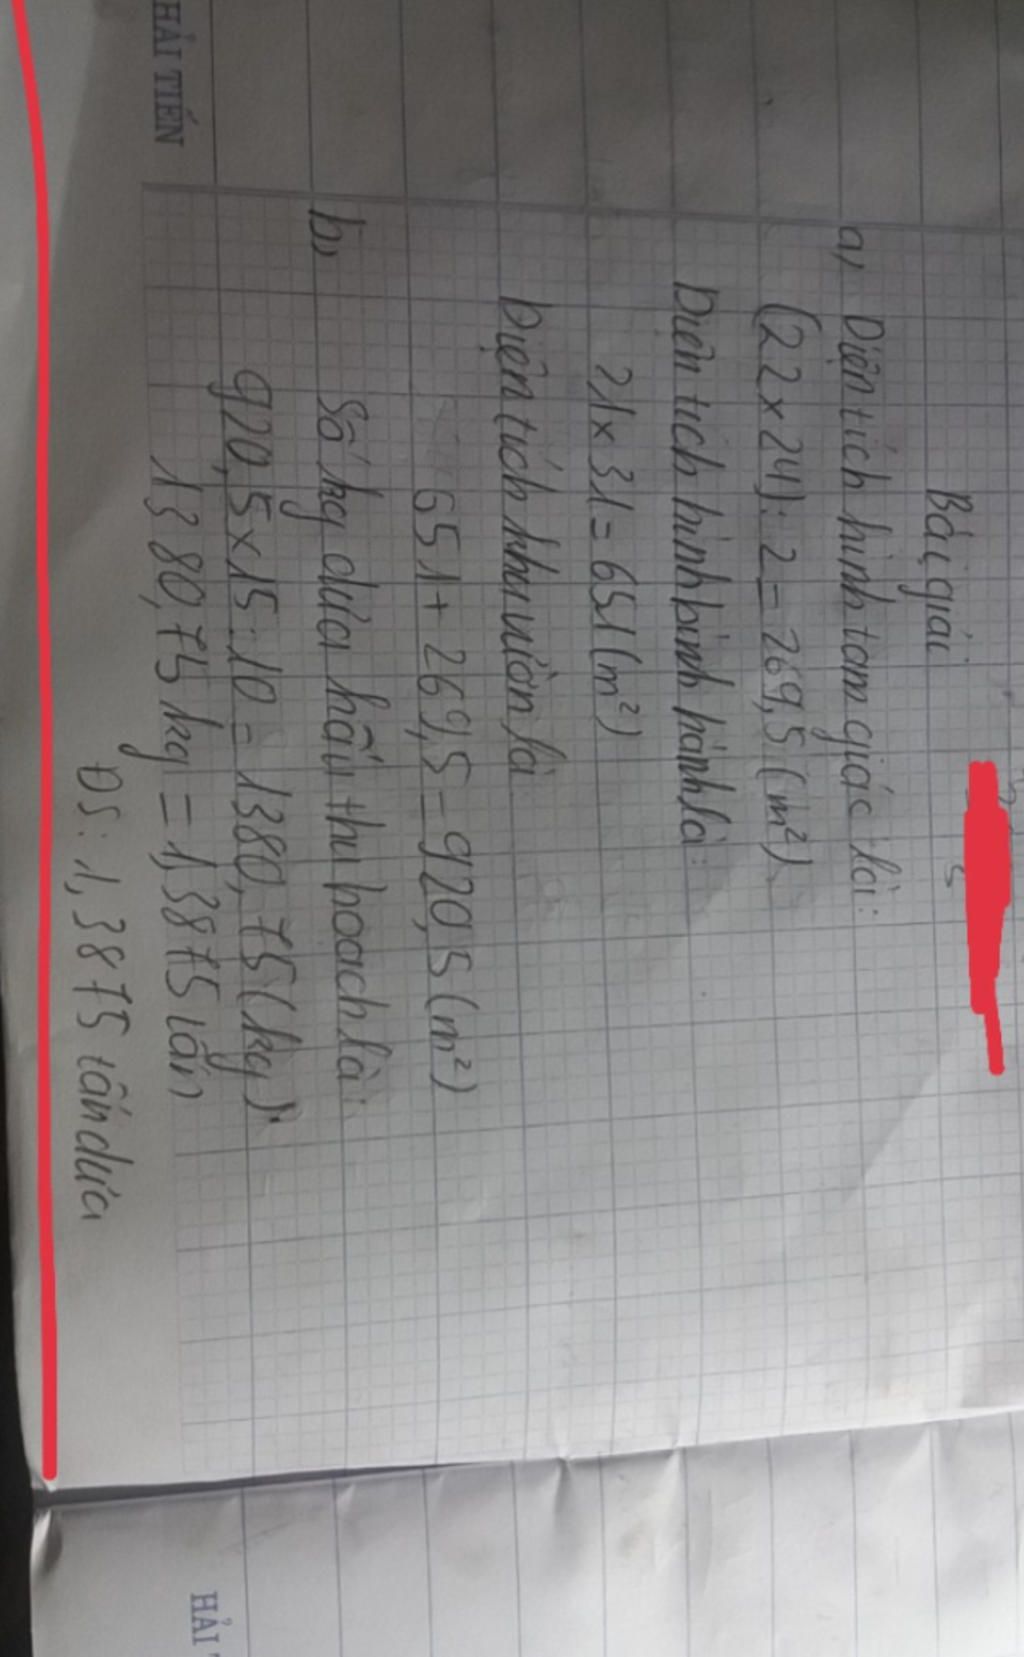 Bài giải
a, Diện tích hình tam giác là:
(22 x 24) : 2 = 269,5 (m²)
Diện tích hình bình hành là:
21 x 31 = 651 (m²)
Diện tích khu vườn là
651 + 269,5 = 920,5 (m²)
b, Số kg dưa hấu thu hoạch là:
920,5 x 15 : 10 = 1380,75 (kg)
1380,75 kg = 1,3875 tấn
ĐS: 1,3875 tấn dưa
HẢI TIẾN
HẢI